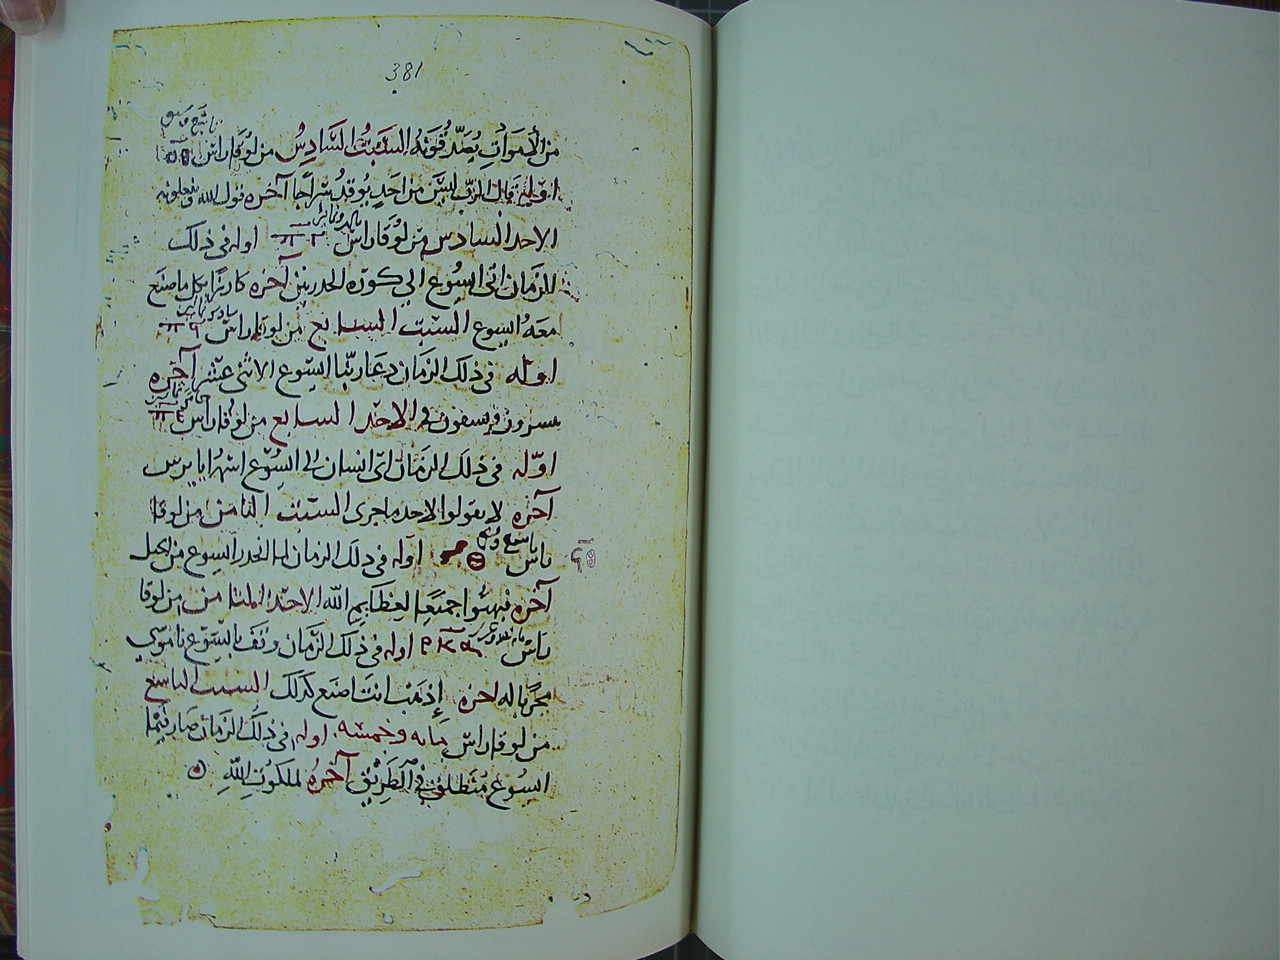 381
من الأموات يصدقونه السبت السادس من لوقا راس
اوله قال الرب ليس من احد يوقد سراجا آخره قول الله ويعملونه
الاحد السادس من لوقا راس اوله في ذلك
الزمان اتى ايسوع الي كورة الجدريين آخره كارزا بكل ما صنع
معه ايسوع السبت السابع من لوقا راس
اوله في ذلك الزمان دعا ربنا ايسوع الاثنى عشر آخره
يبشرون ويشفون في الاحد السابع من لوقا راس
اوله في ذلك الزمان اتى انسان الى ايسوع اسمه يايرس
آخره لا يقولوا لاحد ما جرى السبت الثامن من لوقا
راس اوله في ذلك الزمان لما انحدر ايسوع من الجبل
آخره فبهتوا جميعا لعظايم الله الاحد الثامن من لوقا
راس اوله في ذلك الزمان وقف بايسوع ناموسي
مجربا له اخره إذهب انت اصنع كذلك السبت التاسع
من لوقا راس مايه وخمسه اوله في ذلك الزمان صار فيما
ايسوع منطلق في الطريق آخره لملكوت الله